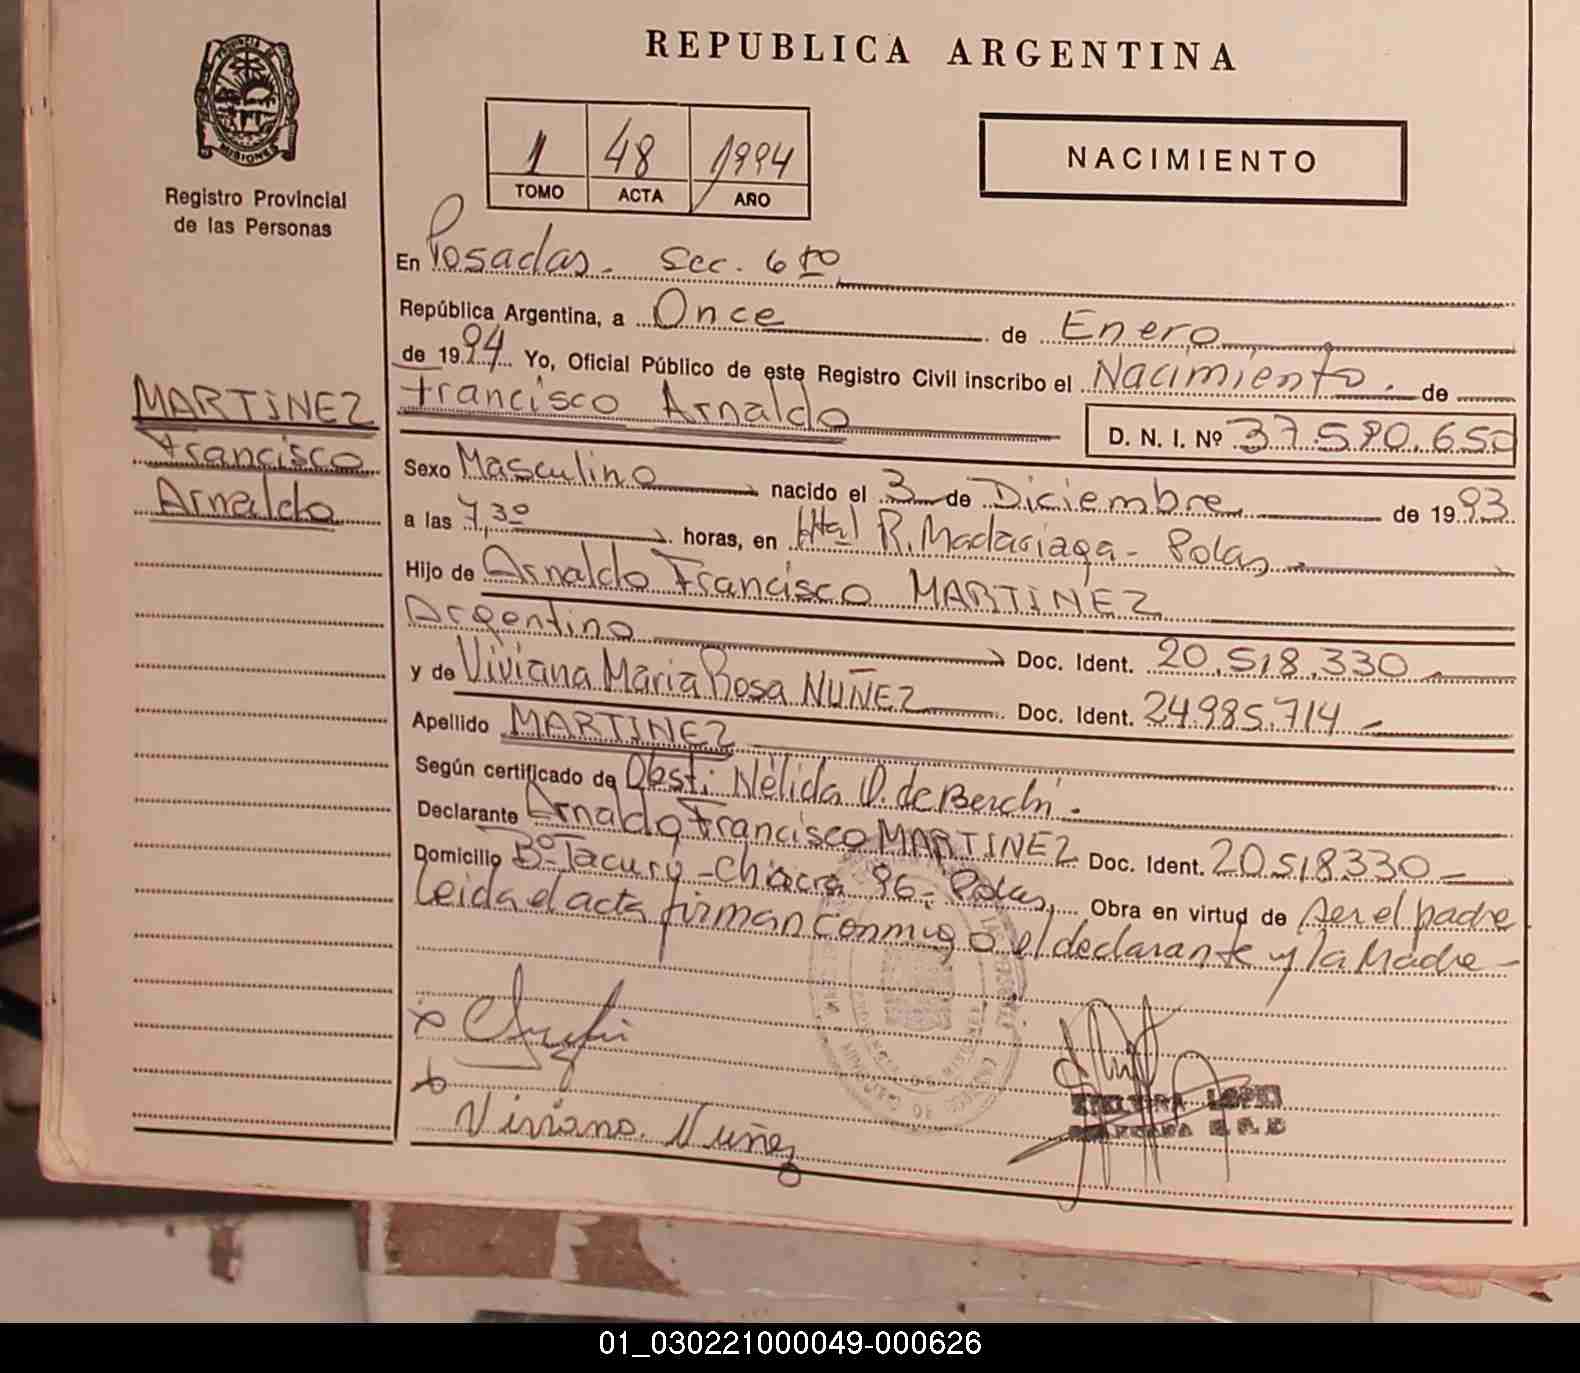 PROVINCIA DE
MISIONES
Registro Provincial
de las Personas
MARTINEZ
Francisco
Arnaldo
REPUBLICA ARGENTINA
1 48 1994
TOMO ACTA AÑO
NACIMIENTO
En Posadas. Sec. 6to
República Argentina, a Once de Enero
de 1994 Yo, Oficial Público de este Registro Civil inscribo el Nacimiento. de
Francisco Arnaldo D. N. I. Nº 37.590.650
Sexo Masculino nacido el 3 de Diciembre de 1993
a las 7,30 horas, en Htal R. Madariaga - Pdas
Hijo de Arnaldo Francisco MARTINEZ
Argentino Doc. Ident. 20.518.330
y de Viviana Maria Rosa NUÑEZ Doc. Ident. 24.985.714
Apellido MARTINEZ
Según certificado de Obst: Nélida O. de Berchi.
Declarante Arnaldo Francisco MARTINEZ Doc. Ident. 20.518.330
Domicilio Bº Tacurú - Chacra 96 - Pdas, Obra en virtud de ser el padre
Leida el acta firman conmigo el declarante y la Madre -
Viviana. Nuñez
LOPEZ
01_030221000049-000626